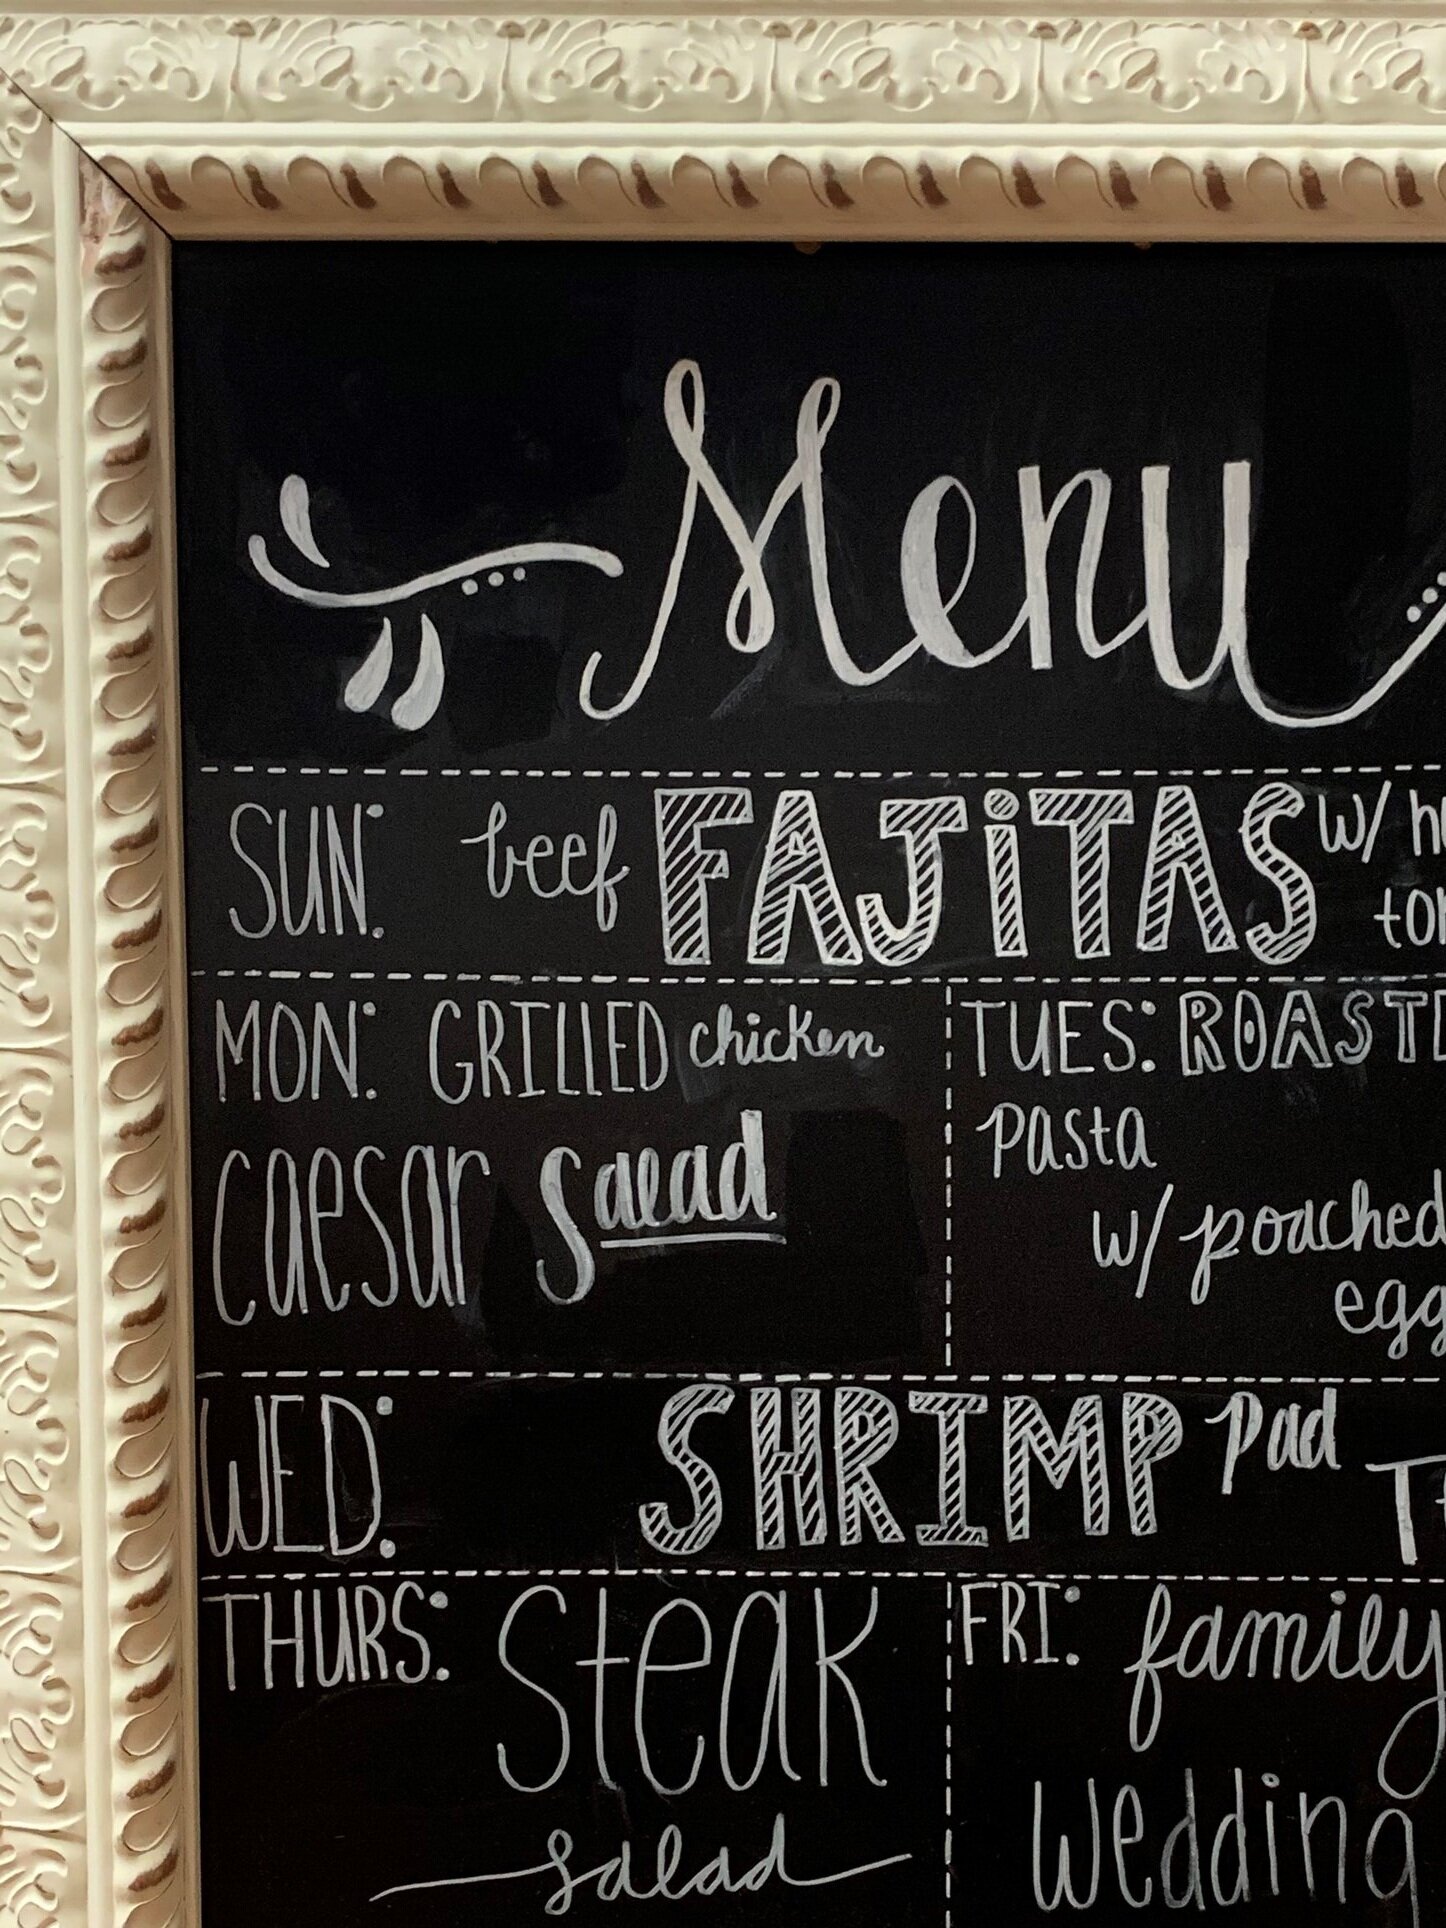 Menu
SUN: beef FAJiTAS w/
MON: GRILLED chicken
caesar Salad
TUES:
pasta
w/ poached
WED: SHRIMP Pad
THURS: Steak
salad
FRI: family
wedding